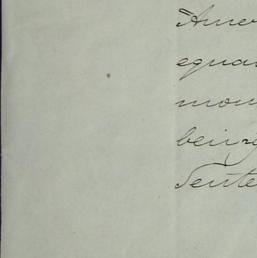 Amer
equa
mon
being
Sente